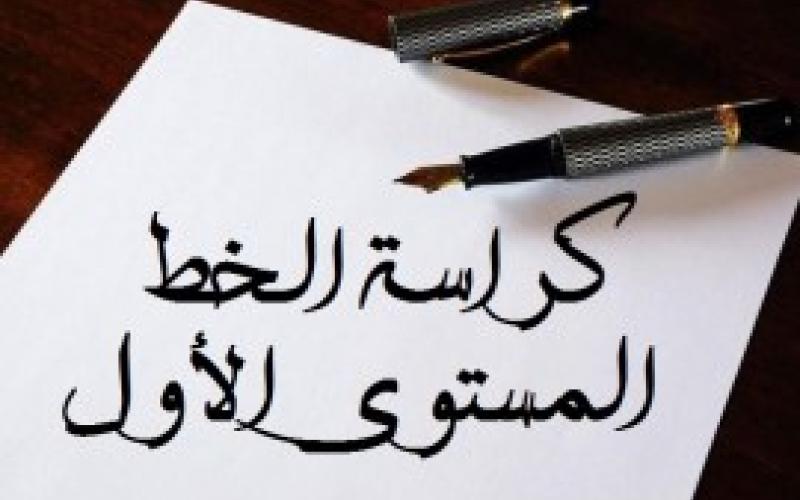 كراسة الخط
المستوى الأول